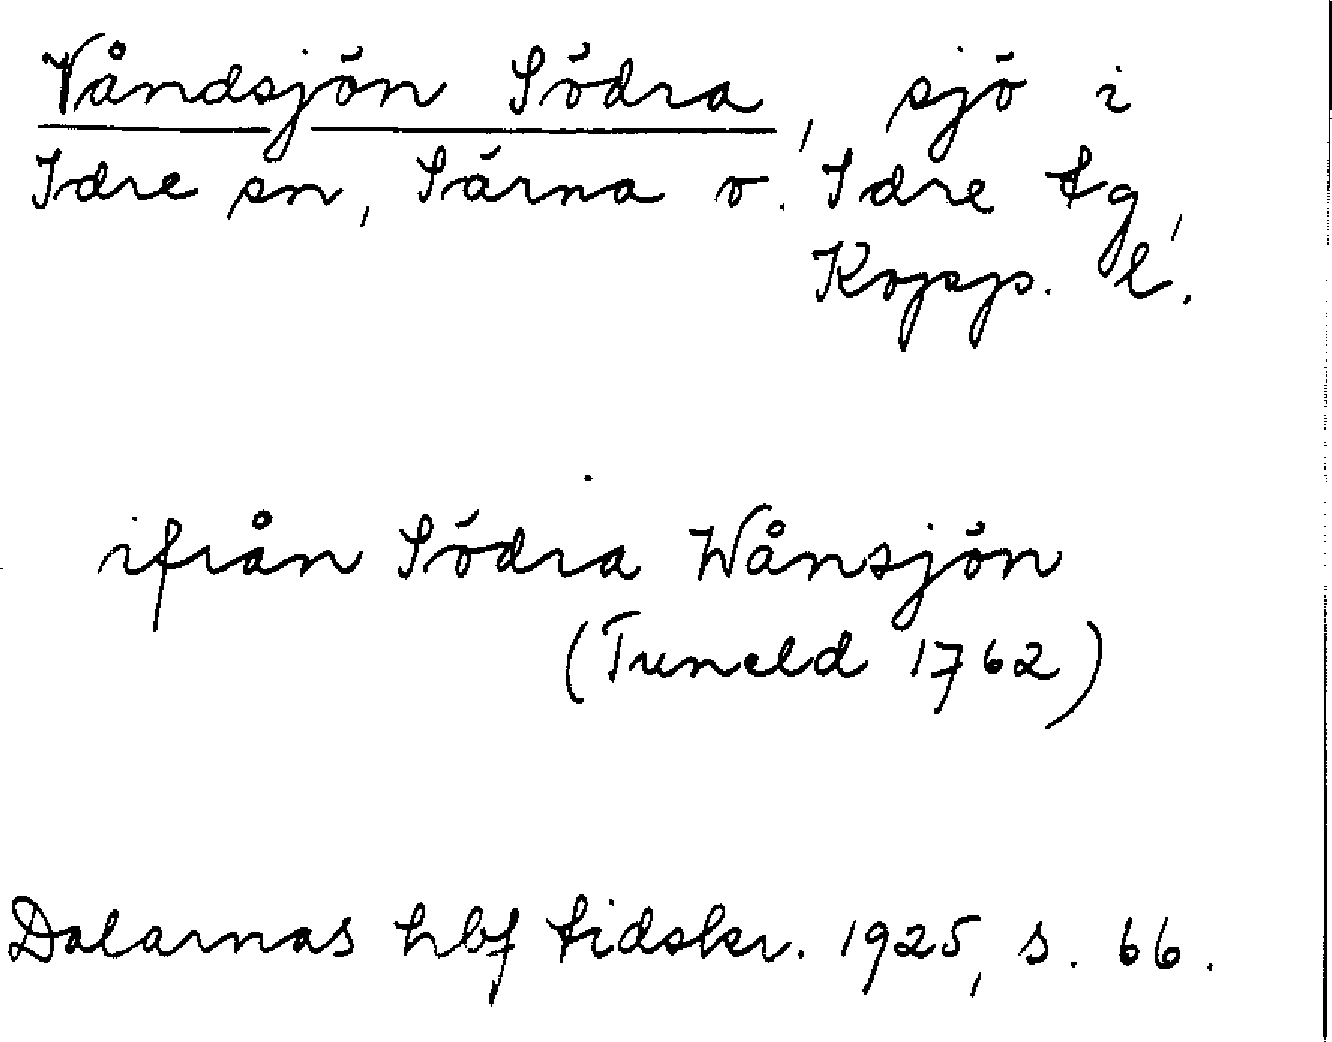 Våndsjön Södra, sjö i
Idre sn, Särna o. Idre tg,
Kopp. l.
ifrån Södra Wånsjön
(Tuneld 1762)
Dalarnas hbf tidskr. 1925, s. 66.